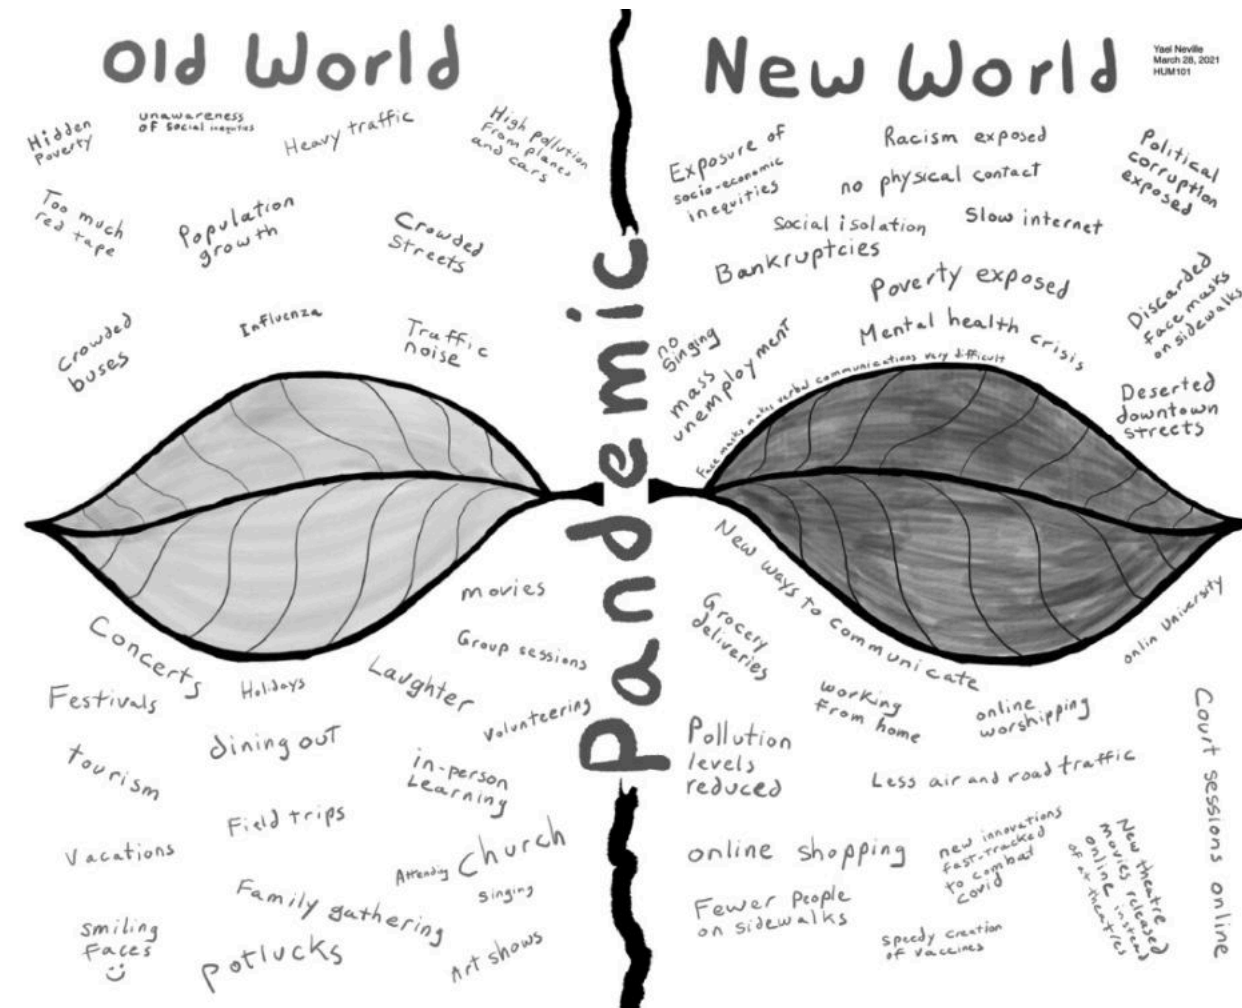 Old World
Hidden
Poverty
unawareness
of social inequities
Heavy traffic
High pollution
from planes
and cars
Too much
red tape
Population
growth
Crowded
Streets
Crowded
buses
Influenza
Traffic
noise
Concerts
movies
Group sessions
Festivals
Holidays
Laughter
Volunteering
tourism
dining out
in-person
Learning
Field trips
Vacations
Attending Church
singing
Family gathering
smiling
Faces
potlucks
Art shows
Pandemic
New World
Yael Neville
March 28, 2021
HUM101
Exposure of
socio-economic
inequities
Racism exposed
Political
corruption
exposed
no physical contact
Social isolation
Slow internet
Bankruptcies
Poverty exposed
Discarded
face masks
on sidewalks
no
singing
mass
unemployment
Mental health crisis
Face masks makes verbal communications very difficult
Deserted
downtown
streets
New ways to communicate
onlin University
Grocery
deliveries
working
from home
online
worshipping
Pollution
levels
reduced
Less air and road traffic
Court sessions online
online shopping
new innovations
fast-tracked
to combat
covid
New theatre
movies released
online instead
of at theatres
Fewer People
on sidewalks
speedy creation
of vaccines